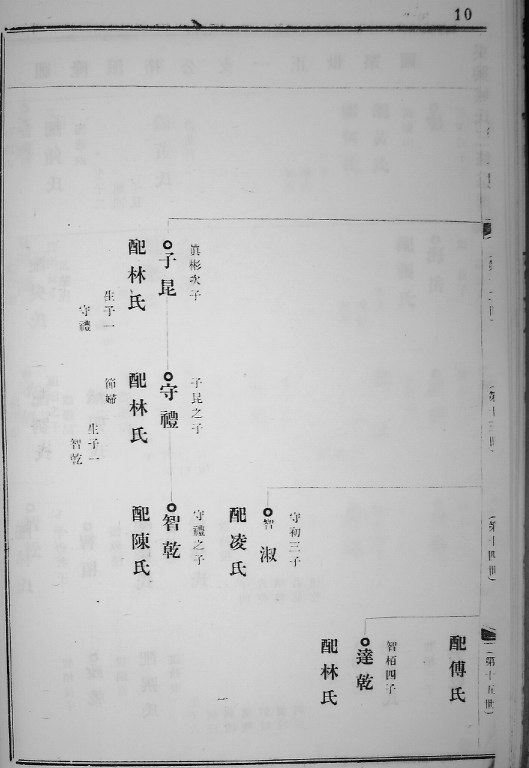 10
眞彬次子
子昆
配林氏
生子一
守禮
(第十三世)
子昆之子
守禮
配林氏
節婦
生子一
智乾
(第十四世)
守初三子
智淑
配凌氏
守禮之子
智乾
配陳氏
(第十五世)
配傅氏
智栢四子
達乾
配林氏